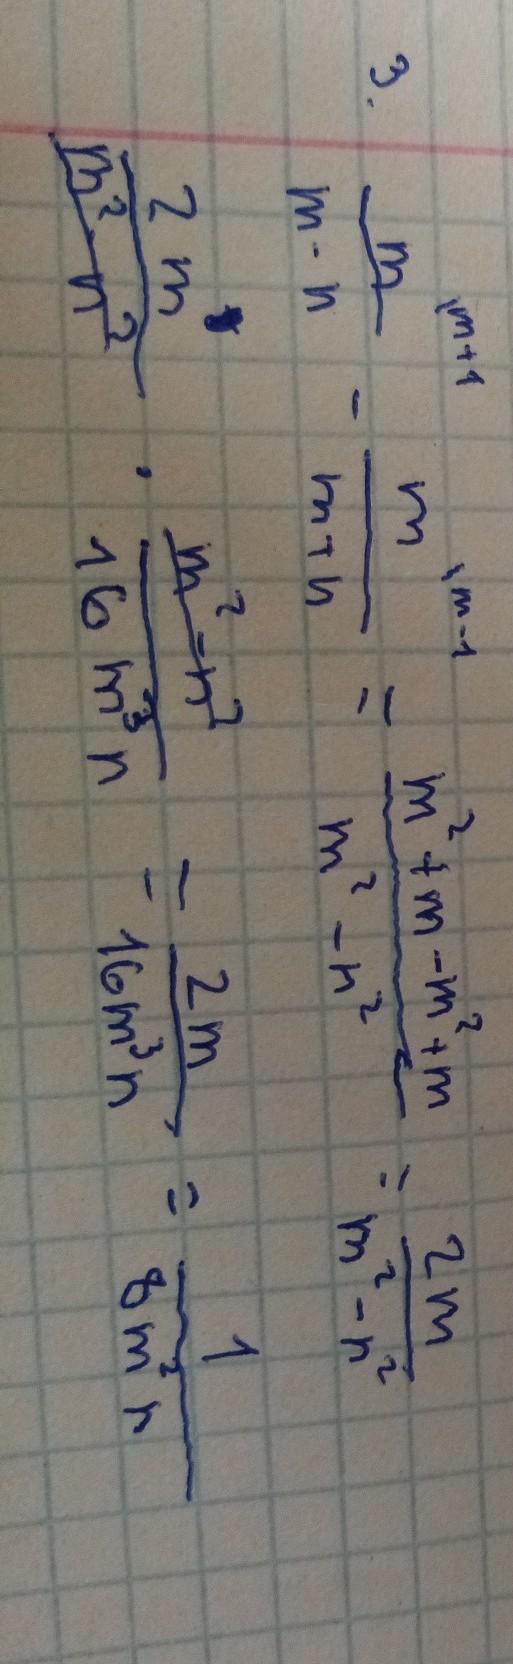 3.
m / (m - n) ᐟm+1 - m / (m + n) ᐟm-1 = (m² + m - m² + m) / (m² - n²) = 2m / (m² - n²)
2m / (m² - n²) · (m² - n²) / (16m³n) = 2m / (16m³n) = 1 / (8m²n)